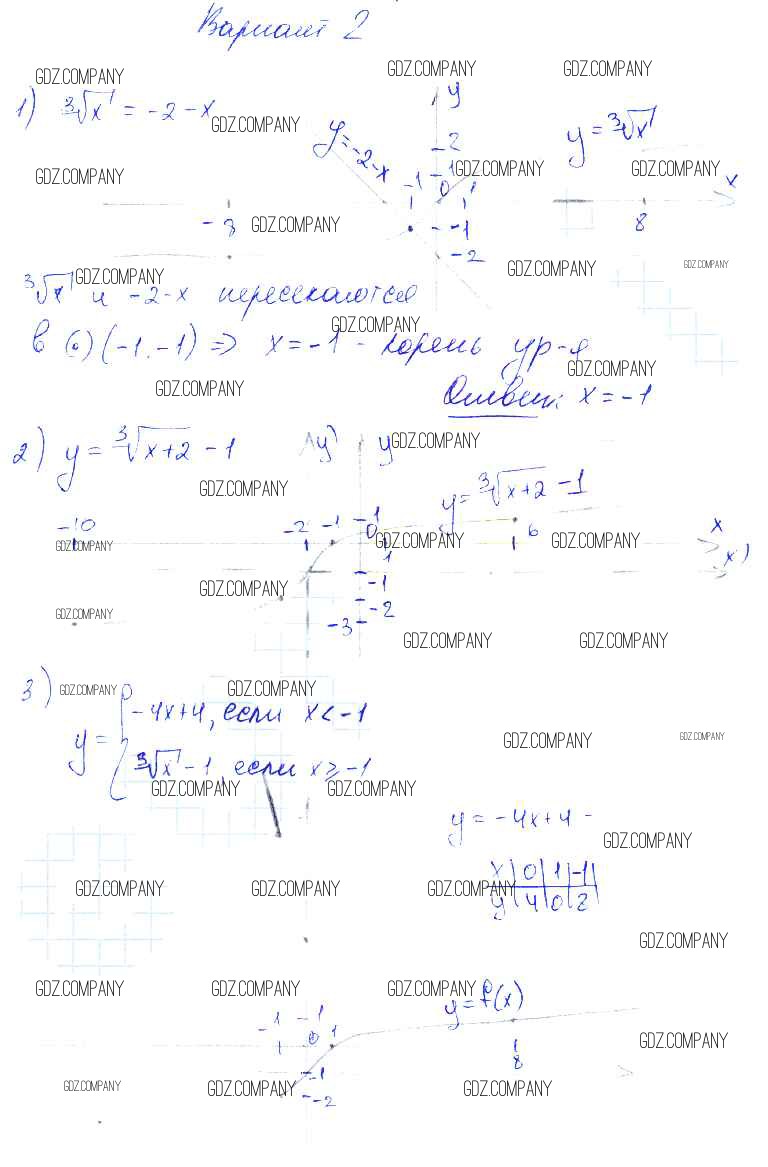 Вариант 2
GDZ.COMPANY GDZ.COMPANY GDZ.COMPANY
1) ³√x = -2 - x
GDZ.COMPANY
y
y = -2 - x
y = ³√x
2
GDZ.COMPANY 1 GDZ.COMPANY GDZ.COMPANY
-1 0 1 x
-8 GDZ.COMPANY -1 8
-2
GDZ.COMPANY GDZ.COMPANY
GDZ.COMPANY
³√x и -2-x пересекаются
GDZ.COMPANY
в (•) (-1, -1) ⇒ x = -1 - корень ур-я
GDZ.COMPANY
GDZ.COMPANY
Ответ: x = -1
2) y = ³√x+2 - 1 y' y GDZ.COMPANY
GDZ.COMPANY
y = ³√x+2 - 1
-10 -2 -1 1 0 6 x
GDZ.COMPANY GDZ.COMPANY GDZ.COMPANY
1 x'
GDZ.COMPANY -1
GDZ.COMPANY -2
-3 GDZ.COMPANY GDZ.COMPANY
3) GDZ.COMPANY GDZ.COMPANY
y = { -4x+4, если x < -1
GDZ.COMPANY GDZ.COMPANY
³√x - 1, если x ≥ -1
GDZ.COMPANY GDZ.COMPANY
y = -4x+4 -
GDZ.COMPANY
x | 0 | 1 | -1 |
GDZ.COMPANY GDZ.COMPANY GDZ.COMPANY
y | 4 | 0 | 2 |
GDZ.COMPANY
GDZ.COMPANY GDZ.COMPANY GDZ.COMPANY
y = f(x)
-1 1
0 1 GDZ.COMPANY
8
-1
GDZ.COMPANY GDZ.COMPANY GDZ.COMPANY
-2